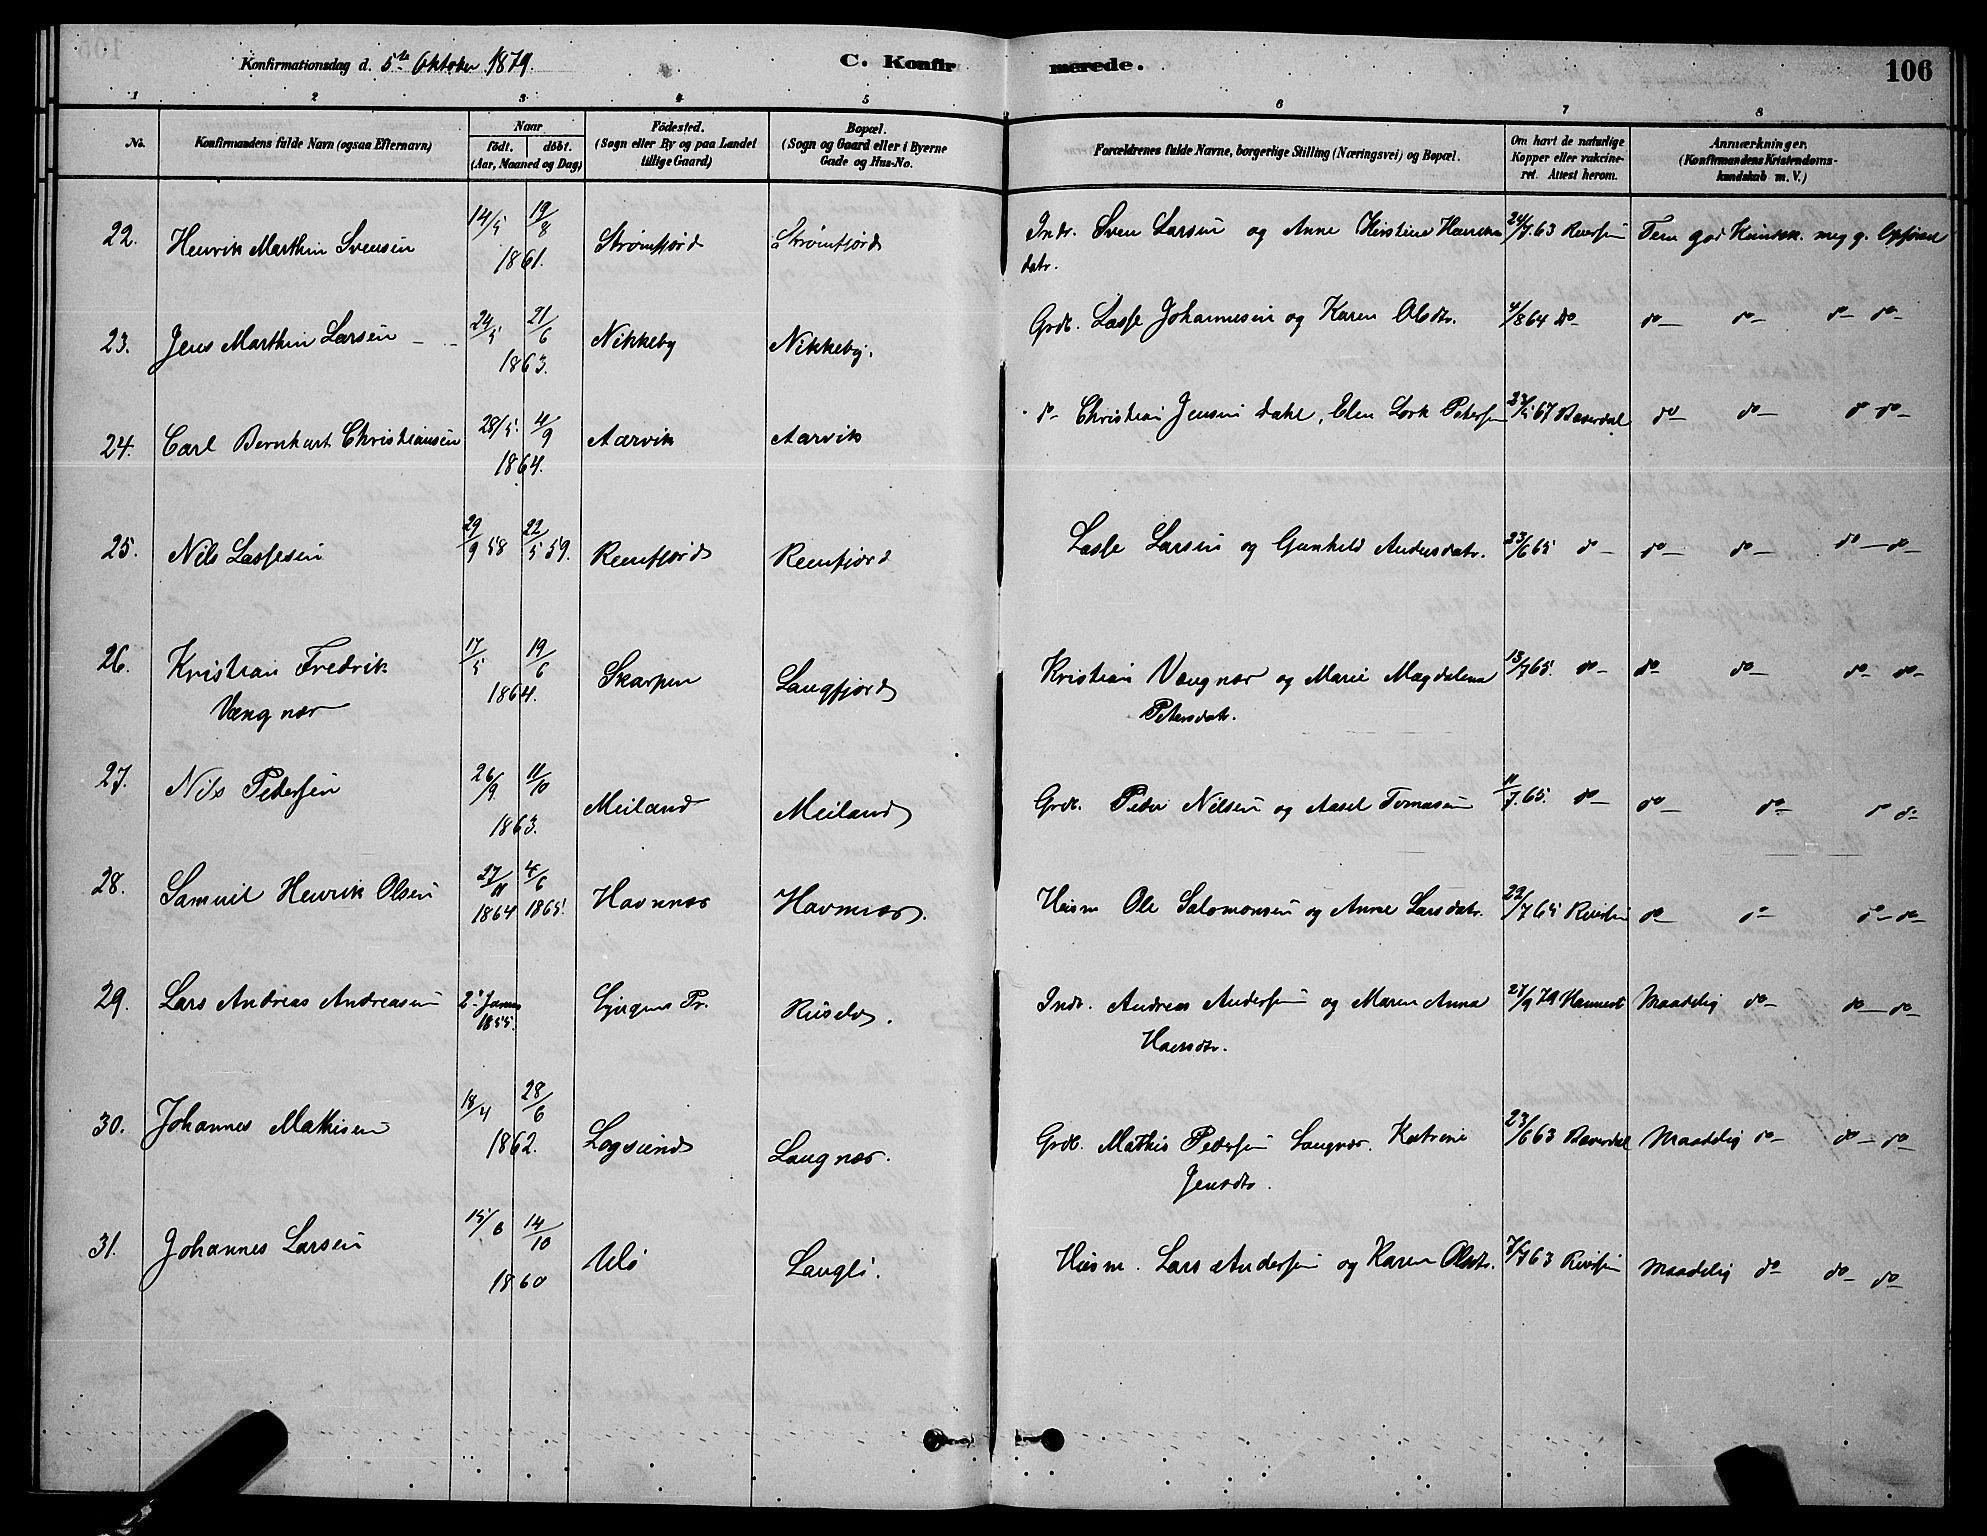 Konfirmationsdag d. 5te Oktober 1879.
C. Konfirmerede.
106
1 2 3 4 5 6 7 8
No.
Konfirmandens fulde Navn (ogsaa Efternavn)
Naar
födt. döbt.
(Aar, Maaned og Dag)
Födested.
(Sogn eller By og paa Landet
tillige Gaard)
Bopæl.
(Sogn og Gaard eller i Byerne
Gade og Hus-No.
Forældrenes fulde Navne, borgerlige Stilling (Næringsvei) og Bopæl.
Om havt de naturlige
Kopper eller vakcine-
ret. Attest herom.
Anmærkninger.
(Konfirmandens Kristendoms-
kundskab m. V.)
22. Henrik Marthin Svensen 14/5 19/8 1861. Strømfjord Strømfjord Indr. Sven Larsen og Anne Kirstine Henriks datr. 24/7.63 god Kundsk. meg g. Opførsel
23. Jens Marthin Larsen 24/5 21/6 1863. Nikkeby Nikkeby. Grdb. Lasse Johannesen og Karen Olsdtr. 4/8 64 do do do do do
24. Carl Bernhart Christiansen 28/5. 4/9 1864. Aarvik Aarvik do Christian Jensen Dahl, Elen Petersen 67 Baverdal do do do do
25. Nils Lassesen 29/9 58 22/5 59. Reenfjord Reenfjord Lasse Larsen og Gunhild Andersdatr. 23/6 65 do do do do do
26. Kristian Fredrik Vængnær 17/5 19/6 1864. Skarpen Langfjord Kristian Vængnær og Marie Magdalena Petersdatr. 13/7 65. do do do do do
27. Nils Pedersen 26/9 11/10 1863. Meiland Meiland Grdb. Peder Nilsen og Aasel Tomasen 11/7.65. do do do do do
28. Samuel Henrik Olsen 27/11 1864 4/6 1865. Havnnæs Havnnæs. Husm Ole Salomonsen og Anne Larsdatr. 22/7 65 do do do do
29. Lars Andreas Andreasen 2. 1855. Lyngens Pr. Indr. Andreas Andersen og Maren Anna Hansdtr. 27/9 79 Maadelig do do do
30. Johannes Mathisen 18/4 28/6 1862. Logsund Langnæs. Grdb. Mathis Pedersen Langnæs. Katrine Jensdtr. 23/6 63 Baverdal Maadelig do do do
31. Johannes Larsen 15/8 14/10 1860 Ulö Langlö. Husm. Lars Andersen og Karen Olsdtr. 63 Maadelig do do do